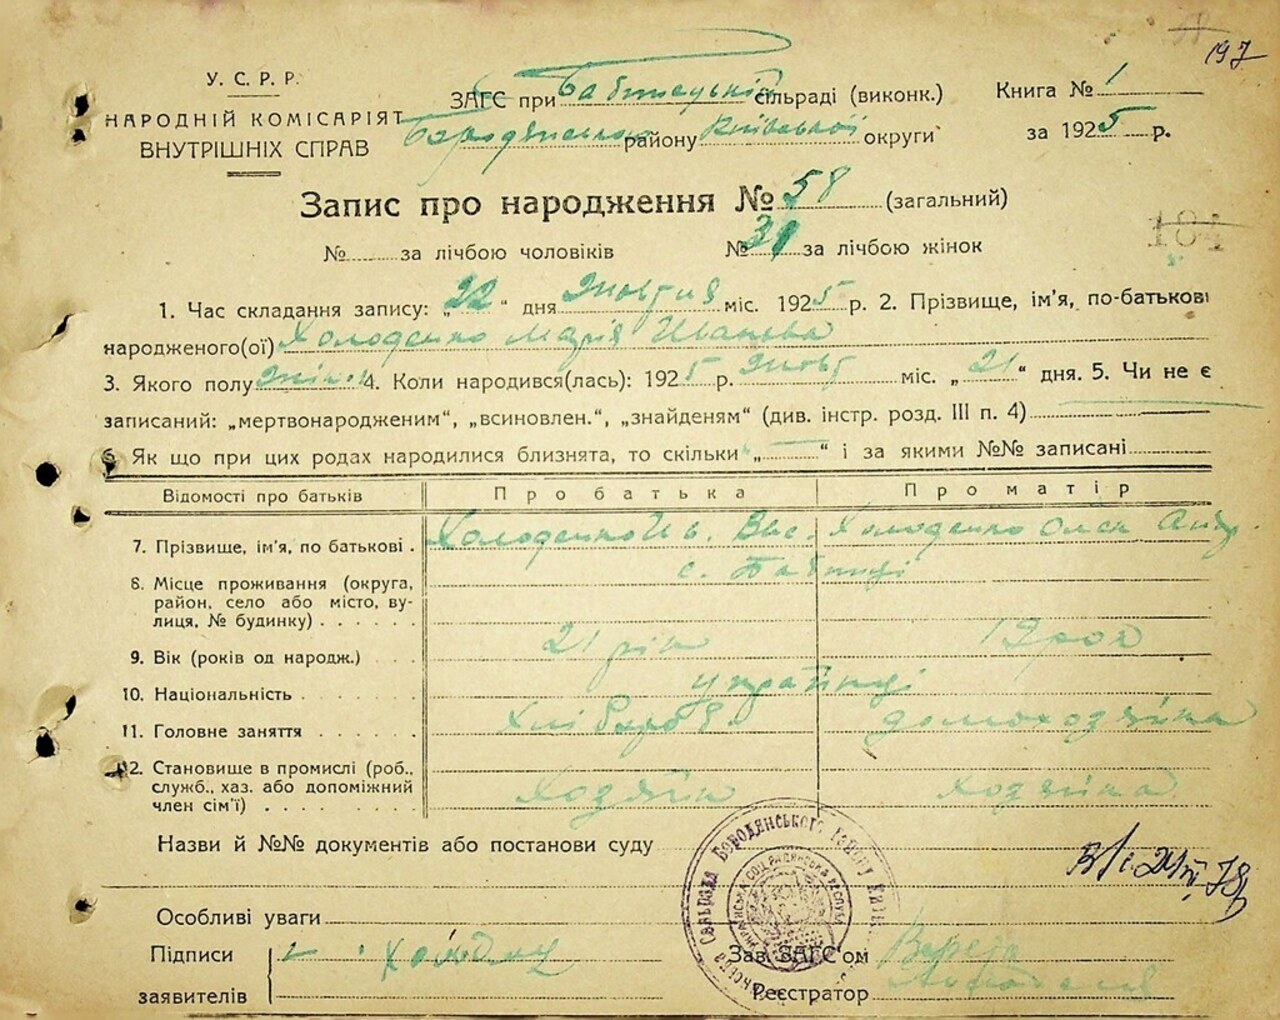 197
У. С. Р. Р.
НАРОДНІЙ КОМІСАРІЯТ
ВНУТРІШНІХ СПРАВ
ЗАГС при Бабинецькій сільраді (виконк.)
Бородянського району Київської округи
Книга № 1
за 1925 р.
Запис про народження № 58 (загальний)
184
№ за лічбою чоловіків № 31 за лічбою жінок
1. Час складання запису: „22“ дня Жовтня міс. 1925 р. 2. Прізвище, ім’я, по-батькові
народженого(ої) Холоденко Марія Иванівна
3. Якого полу жіноч 4. Коли народився(лась): 1925 р. Жовт міс. „21“ дня. 5. Чи не є
записаний: „мертвонародженим“, „всиновлен.“, „знайденям“ (див. інстр. розд. III п. 4)
6. Як що при цих родах народилися близнята, то скільки „ “ і за якими №№ записані
Відомості про батьків Про батька Про матір
7. Прізвище, ім’я, по батькові . Холоденко Ив. Вас. Холоденко Олек Анд.
8. Місце проживання (округа, с. Бабинці
район, село або місто, ву-
лиця, № будинку)
9. Вік (років од народж.) 21 рік 19 рок
10. Національність українці
11. Головне заняття Хлібороб домохозяйка
12. Становище в промислі (роб.,
служб., хаз. або допоміжний
член сім’ї) хозяїн хозяйка
Назви й №№ документів або постанови суду
Особливі уваги
Підписи
заявителів
Зав. ЗАГС’ом
Реєстратор
Сільрада Бородянського району